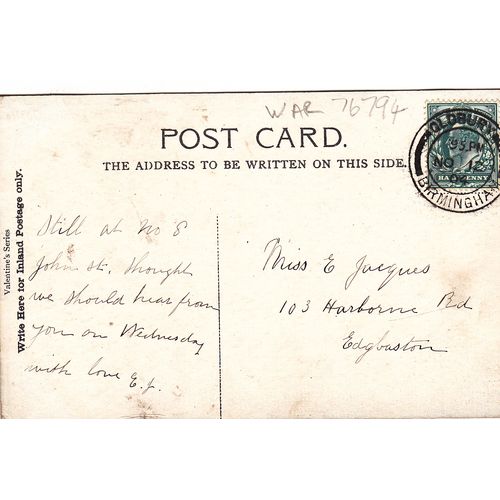 WAR 76794
POST CARD.
THE ADDRESS TO BE WRITTEN ON THIS SIDE.
OLDBURY
BIRMINGHA
NO
HALFPENNY
Valentine's Series
Write Here for Inland Postage only.
Still at No 8
John St. Thought
we should hear from
you on Wednesday
with love E.J.
Miss E Jacques
103 Harborne Rd
Edgbaston